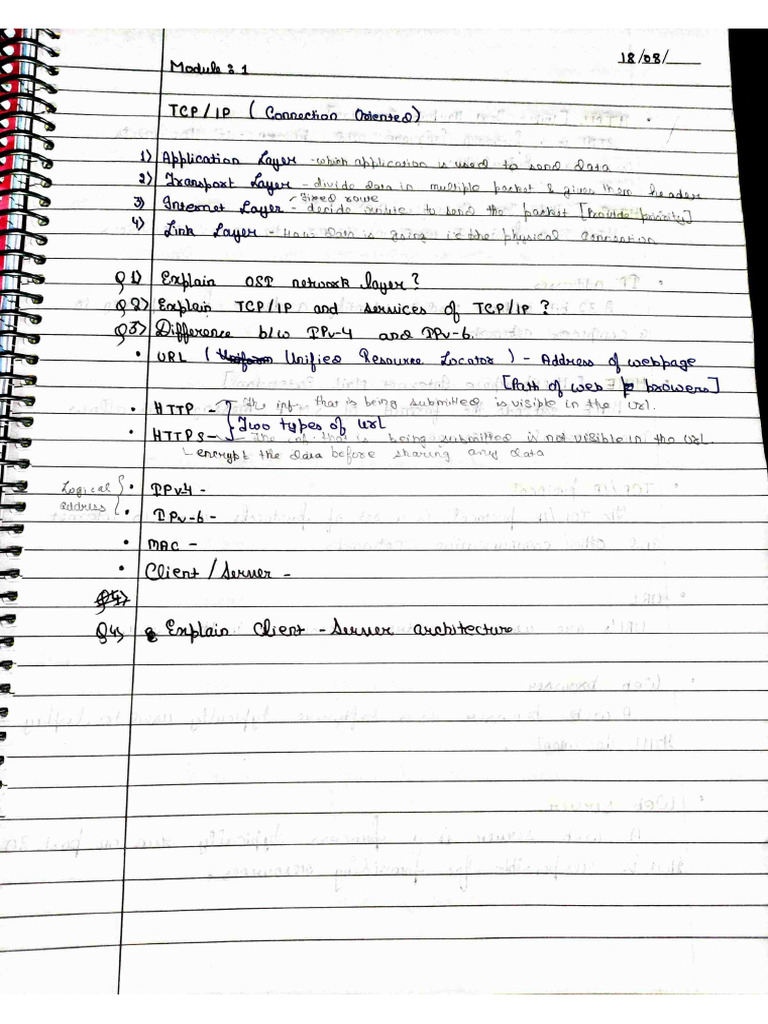 18/08/
Module : 1
TCP/IP ( Connection Oriented)
1) Application Layer - which application is used to send data
2) Transport Layer - divide data in multiple packet & gives them header
fixed route
3) Internet Layer - decide route to send the packet [Provide priority]
4) Link Layer - how data is going is the physical connection
Q1) Explain OSI network layer?
Q2) Explain TCP/IP and services of TCP/IP ?
Q3) Difference b/w IPv-4 and IPv-6.
• URL ( Uniform Unified Resource Locator ) - Address of webpage
[Path of web browers]
• HTTP - The inf. that is being submitted is visible in the url.
Two types of url
• HTTPs - The inf. that is being submitted is not visible in the url
encrypt the data before sharing any data
Logical address
• IPv-4 -
• IPv-6 -
• MAC -
• Client / Server -
Q4)
Q4) Explain Client - Server architecture